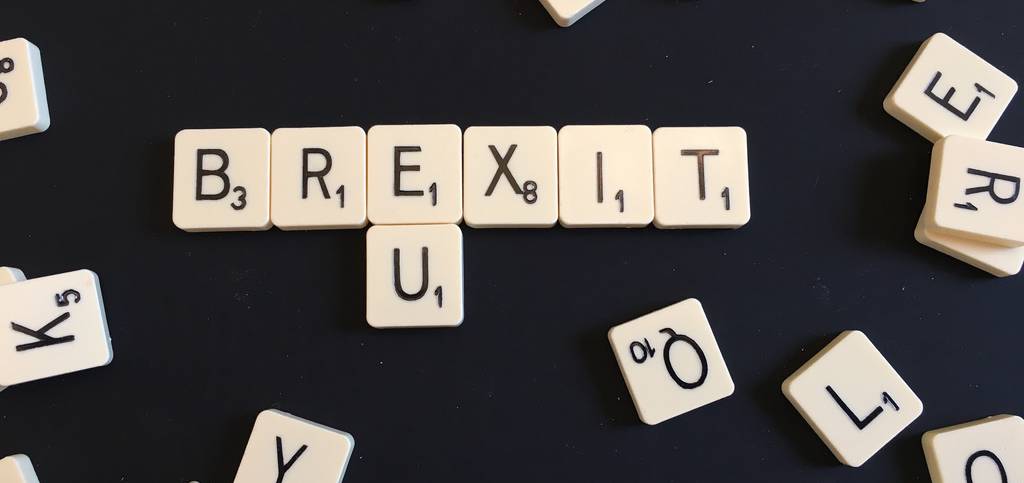 B3 R1 E1 X8 I1 T1
U1
E1
R1
K5
Q10
L1
Y
O